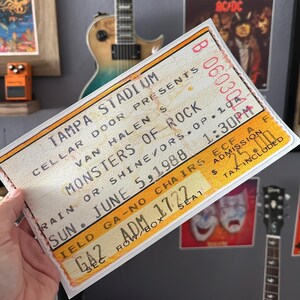 AC/DC
TAMPA STADIUM
CELLAR DOOR PRESENTS
VAN HALEN'S
MONSTERS OF ROCK
RAIN OR SHINE/DRS.OP.10A
SUN. JUNE 5,1988 1:30PM
FIELD GA-NO CHAIRS
ADMISSION
TAX-INCLUDED
GA7 ADM 1722
SEC ROW/BOX SEAT
B 060304